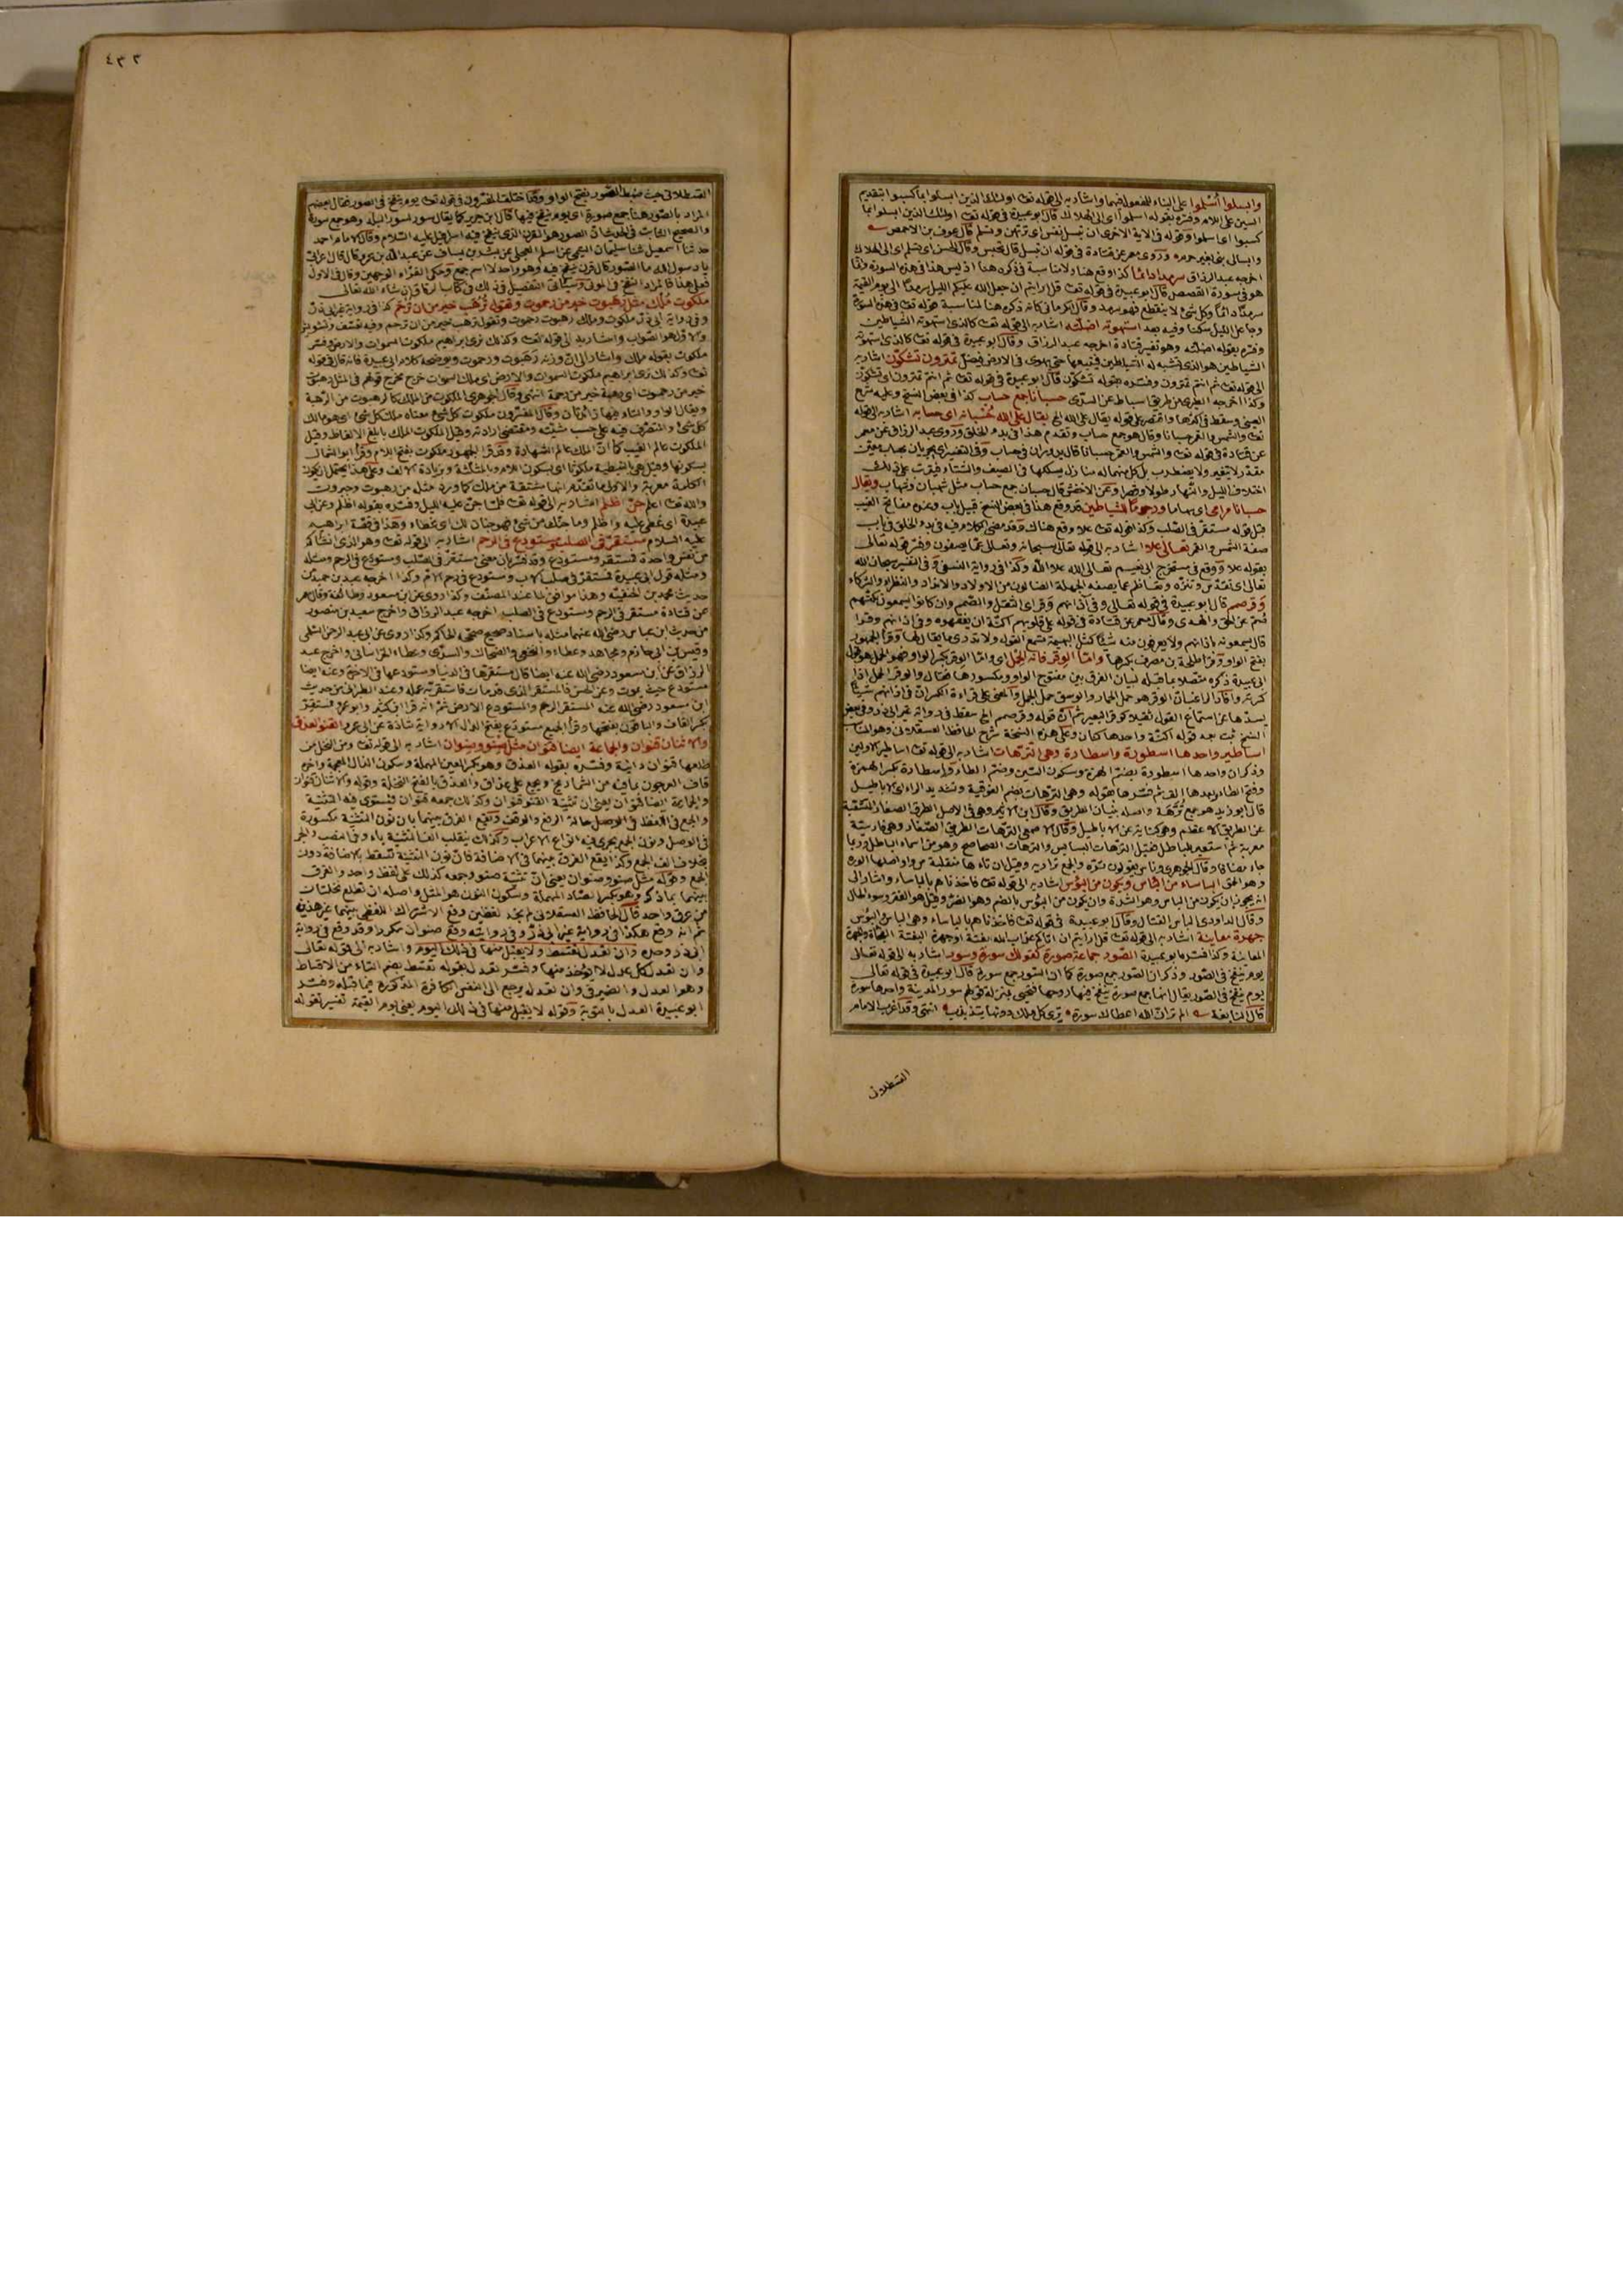 وابسلوا أسلموا على البناء للمفعول فيهما واشار به الى قوله تعالى اولئك الذين ابسلوا بما كسبوا بتقديم
السين على اللام وفسره بقوله اسلموا اى الى الهلاك قال ابو عبيدة فى قوله تعالى اولئك الذين ابسلوا بما
كسبوا اى اسلموا وقوله فى الآية الاخرى ان تبسل نفس اى ترتهن وتسلم قال عوف بن الاحوص
وروى معمر عن قتادة فى قوله ان تبسل قال تحبس وقال الحسن اى تسلم اى الى الهلاك
اخرجه عبد الرزاق سرمدا دائما كذا وقع هنا ولا مناسبة فى ذكره هنا اذ ليس هذا فى هذه السورة وانما
هو فى سورة القصص قال ابو عبيدة فى قوله تعالى قل ارايتم ان جعل الله عليكم الليل سرمدا الى يوم القيمة
سرمدا دائما وكل شئ لا ينقطع فهو سرمد وقال الكرمانى كانه ذكره هنا لمناسبة قوله تعالى فى هذه السورة
وجاعل الليل سكنا وفيه بعد استهوته اضلته اشار به الى قوله تعالى كالذى استهوته الشياطين
وفسره بقوله اضلته وهو تفسير قتادة اخرجه عبد الرزاق وقال ابو عبيدة فى قوله تعالى كالذى استهوته
الشياطين هو الذى تشبه له الشياطين فيتبعها حتى يهوى فى الارض فيضل تمترون تشكون اشار به
الى قوله تعالى ثم انتم تمترون وفسره بقوله تشكون قال ابو عبيدة فى قوله تعالى ثم انتم تمترون اى تشكون
وكذا اخرجه الطبرى من طريق اسباط عن السدى حسبانا جمع حساب كذا فى بعض النسخ وعليه شرح
العينى وسقط فى اكثرها واقتصر على قوله يقال على الله الخ يقال على الله حسبانه اى حسابه اشار به الى قوله
تعالى والشمس والقمر حسبانا وقال هو جمع حساب وتقدم هذا فى بدء الخلق وروى عبد الرزاق عن معمر
عن قتادة فى قوله تعالى والشمس والقمر حسبانا قال يدوران فى حساب وفى التفسير اى يجريان بحساب متقن
مقدر لا يتغير ولا يضطرب بل كل منهما له منازل يسلكها فى الصيف والشتاء فيترتب على ذلك
اختلاف الليل والنهار طولا وقصرا وعن الاخفش قال حسبان جمع حساب مثل شهبان وشهاب ويقال
حسبانا مرامى اى سهاما ورجوما للشياطين قد وقع هذا فى بعض النسخ قبيل باب وعنده مفاتح الغيب
قبل قوله مستقر فى الصلب وكذا قوله تعالى علا وقع هناك وقد مضى الكلام فيه فى بدء الخلق فى باب
صفة الشمس والقمر تعالى علا اشار به الى قوله تعالى سبحانه وتعالى عما يصفون وفسر قوله تعالى
بقوله علا ووقع فى مستخرج ابى نعيم تعالى الله علا الله وكذا فى رواية النسفى وفى التفسير سبحان الله
تعالى اى تقدس وتنزه وتعاظم عما يصفه الجهلة الضالون من الاولاد والانداد والنظراء والشركاء
وقر صمم قال ابو عبيدة فى قوله تعالى وفى آذانهم وقر اى الثقل والصمم وان كانوا يسمعون لكنهم
صم عن الحق والهدى وقال معمر عن قتادة فى قوله على قلوبهم اكنة ان يفقهوه وفى اذانهم وقرا
قال يسمعونه باذانهم ولا يعون منه شيئا كمثل البهيمة تسمع القول ولا تدرى ما يقال لها وقرأ الجمهور
بفتح الواو وقرأ طلحة بن مصرف بكسرها واما الوقر فانه الحمل اى واما الوقر بكسر الواو فهو الحمل هو قول
ابى عبيدة ذكره متصلا بما قبله لبيان الفرق بين مفتوح الواو ومكسورها فقال والوقر الحمل اذا
كسرته وافاد الراغب ان الوقر هو حمل الحمار والوسق حمل الجمل والمعنى على قراءة الكسر ان فى اذانهم شيئا
يسدها عن استماع القول ثقيلا كوقر البعير ثم ان قوله وقر صمم الخ سقط فى رواية غير ابى ذر وفى بعض
النسخ ثبت بعده قوله اكنة واحدها كنان وعلى هذه النسخة شرح الحافظ العسقلانى وهو المناسب
اساطير واحدها اسطورة واسطارة وهى الترهات اشار به الى قوله تعالى اساطير الاولين
وذكر ان واحدها اسطورة بضم الهمزة وسكون السين وضم الطاء واسطارة بكسر الهمزة
وفتح الطاء وبعدها الف ثم فسرها بقوله وهى الترهات بضم الفوقية وتشديد الراء اى الاباطيل
قال ابو زيد هو جمع ترهة واصله بنيات الطريق وقال ابن الاثير وهى فى الاصل الطرق الصغار المتشعبة
عن الطريق الاعظم وهى كناية عن الاباطيل وقال الاصمعى الترهات الطرق الصغار وهى فارسية
معربة ثم استعير للباطل فقيل الترهات البسابس والترهات الصحاصح وهو من اسماء الباطل وربما
جاء مضافا وقال الجوهرى وناس يقولون تره والجمع تراريه وقيل ان تاءها منقلبة من واو اصلها الوره
وهو الحمق البأساء من البأس ويكون من البؤس اشار به الى قوله تعالى فاخذناهم بالبأساء واشار الى
انه يجوز ان يكون من البأس وهو الشدة وان يكون من البؤس بالضم وهو الضر وقيل هو الفقر وسوء الحال
وقال الداودى البأس القتال وقال ابو عبيدة فى قوله تعالى فاخذناهم بالبأساء وهى البأس البؤس
جهرة معاينة اشار به الى قوله تعالى قل ارايتم ان اتاكم عذاب الله بغتة او جهرة البغتة الفجأة والجهرة
المعاينة وكذا فسره ابو عبيدة الصور جماعة صورة كقولك سورة وسور اشار به الى قوله تعالى
يوم ينفخ فى الصور وذكر ان الصور جمع صورة كما ان السور جمع سورة قال ابو عبيدة فى قوله تعالى
يوم ينفخ فى الصور يقال انها جمع سورة ينفخ فيها روحها فتحيى بمنزلة قولهم سور المدينة واحدها سورة
قال النابغة الم تر ان الله اعطاك سورة ترى كل ملك دونها يتذبذب انتهى وقد اغرب الامام
القسطلانى
٤٣٢
القسطلانى حيث ضبط الصور بفتح الواو وقد اختلف المفسرون فى قوله تعالى يوم ينفخ فى الصور فقال بعضهم
المراد بالصور هنا جمع صورة اى يوم ينفخ فيها قال ابن جرير كما يقال سور لسور البلد وهو جمع سورة
والصحيح الثابت فى الحديث ان الصور هو القرن الذى ينفخ فيه اسرافيل عليه السلام وقال الامام احمد
حدثنا اسمعيل ثنا سليمان التيمى عن اسلم العجلى عن بشر بن شغاف عن عبد الله بن عمرو قال قال اعرابى
يا رسول الله ما الصور قال قرن ينفخ فيه وهو واحد لا اسم جمع وحكى الفراء الوجهين وقال فى الاول
فعلى هذا فالمراد النفخ فى الموتى وسيأتى التفصيل فى ذلك فى كتاب الرقاق ان شاء الله تعالى
ملكوت ملك مثل رهبوت خير من رحموت وتقول ترهب خير من ان ترحم كذا فى رواية غير ابى ذر
وفى رواية ابى ذر ملكوت وملك رهبوت رحموت وتقول ترهب خير من ان ترحم وفيه تعسف وتشويش
والاول هو الصواب واشار به الى قوله تعالى وكذلك نرى ابراهيم ملكوت السموات والارض وفسر
ملكوت بقوله ملك واشار الى ان وزنه رهبوت ورحموت ويوضحه كلام ابى عبيدة فانه قال فى قوله
تعالى وكذلك نرى ابراهيم ملكوت السموات والارض اى ملك السموات خرج مخرج قولهم فى المثل رهبوت
خير من رحموت اى رهبة خير من رحمة انتهى وقال الجوهرى الملكوت من الملك كالرهبوت من الرهبة
ويقال الواو والتاء فيها زائدتان وقال المفسرون ملكوت كل شئ معناه ملك كل شئ اى هو مالك
كل شئ والمتصرف فيه على حسب مشيئته ومقتضى ارادته وقيل الملكوت الملك بابلغ الالفاظ وقيل
الملكوت عالم الغيب كما ان الملك عالم الشهادة وقرأ الجمهور ملكوت بفتح اللام وقرأ ابو السمال
بسكونها وقيل هى النبطية ملكوثا اى بسكون اللام وبالمثلثة وزيادة الالف وعلى هذا يحتمل ان يكون
الكلمة معربة والاولى ما تقدم انها مشتقة من ملك كما ورد مثله من رهبوت وجبروت
والله تعالى اعلم جن اظلم اشار به الى قوله تعالى فلما جن عليه الليل وفسره بقوله اظلم وعن ابى
عبيدة اى غطى عليه واظلم وما جنك من شئ فهو جنان لك اى غطاء وهذا فى قصة ابراهيم
عليه السلام مستقر فى الصلب ومستودع فى الرحم اشار به الى قوله تعالى وهو الذى انشأكم
من نفس واحدة فمستقر ومستودع وقد فسر بان معنى مستقر فى الصلب ومستودع فى الرحم ومثله
ومثله قول ابى عبيدة فمستقر فى صلب الاب ومستودع فى رحم الام وكذا اخرجه عبد بن حميد من
حديث محمد بن الحنفية وهذا موافق لما عند المصنف وكذا روى عن ابن مسعود وطائفة وقال معمر
عن قتادة مستقر فى الرحم ومستودع فى الصلب اخرجه عبد الرزاق واخرج سعيد بن منصور
من حديث ابن عباس رضى الله عنهما مثله باسناد صحيح صححه الحاكم وكذا روى عن ابى عبد الرحمن السلمى
وقيس بن ابى حازم ومجاهد وعطاء والنخعى والضحاك والسدى وعطاء الخراسانى واخرج عبد
الرزاق عن ابن مسعود رضى الله عنه ايضا قال مستقرها فى الدنيا ومستودعها فى الآخرة وعنه ايضا
مستودع حيث يموت وعن الحسن فالمستقر الذى قد مات فاستقر به عمله وعند الطبرانى من حديث
ابن مسعود رضى الله عنه المستقر الرحم والمستودع الارض ثم انه قرأ ابن كثير وابو عمرو فمستقر
بكسر القاف والباقون بفتحها وقرأ الجميع مستودع بفتح الدال الا رواية شاذة عن ابى عمرو القنو العذق
والاثنان قنوان والجماعة ايضا قنوان مثل صنو وصنوان اشار به الى قوله تعالى ومن النخل من
طلعها قنوان دانية وفسره بقوله العذق وهو بكسر العين المهملة وسكون الذال المعجمة وآخره
قاف العرجون بما فيه من الشماريخ ويجمع على عذاق والعذق بالفتح النخلة وقوله والاثنان قنوان
والجماعة ايضا قنوان يعنى ان تثنية القنو قنوان وكذلك جمعه قنوان فيستوى فيه التثنية
والجمع فى اللفظ فى الوصل حالة الرفع والوقف ويقع الفرق بينهما بان نون التثنية مكسورة
فى الوصل ونون الجمع يجرى فيه انواع الاعراب وكذلك ينقلب الف التثنية ياء فى النصب والجر
بخلاف الف الجمع وكذا يقع الفرق بينهما فى الاضافة فان نون التثنية تسقط بالاضافة دون
الجمع وقوله مثل صنو وصنوان يعنى ان تثنية صنو وجمعه كذلك على لفظ واحد والفرق
بينهما بما ذكر وهو بكسر الصاد المهملة وسكون النون هو المثل واصله ان تطلع نخلتان
من عرق واحد قال الحافظ العسقلانى لم نجد لفظين وقع الاشتراك اللفظى بينهما غير هذين
ثم انه وقع هكذا فى رواية غير ابى ذر وفى روايته وقع صنوان مكررا وقد وقع فى رواية
ابى ذر وحده وان تعدل تقسط ولا يقبل منها فى ذلك اليوم واشار به الى قوله تعالى
وان تعدل كل عدل لا يؤخذ منها وفسر تعدل بقوله تقسط بضم التاء من الاقساط
وهو العدل والضمير فى وان تعدل يرجع الى النفس الكافرة المذكورة فيما قبله وفسر
ابو عبيدة العدل بالتوبة وقوله لا يقبل منها فى ذلك اليوم يعنى يوم القيمة تفسير لقوله